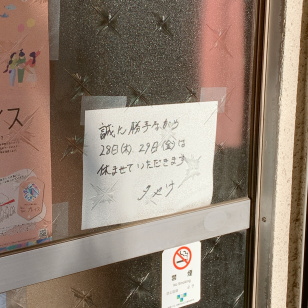 誠に勝手ながら
28日(木) 29日(金)は
休ませていただきます
夕やけ
イス
禁煙